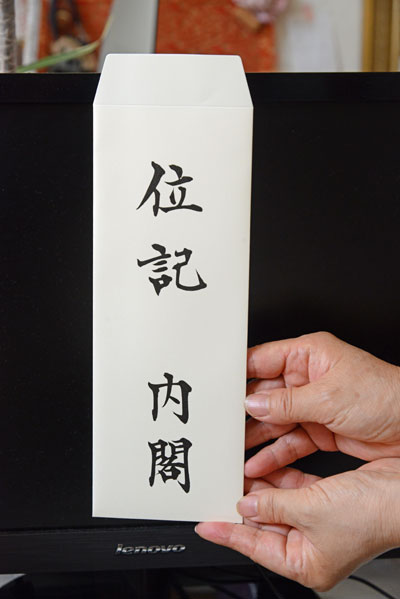 位記 内閣
lenovo